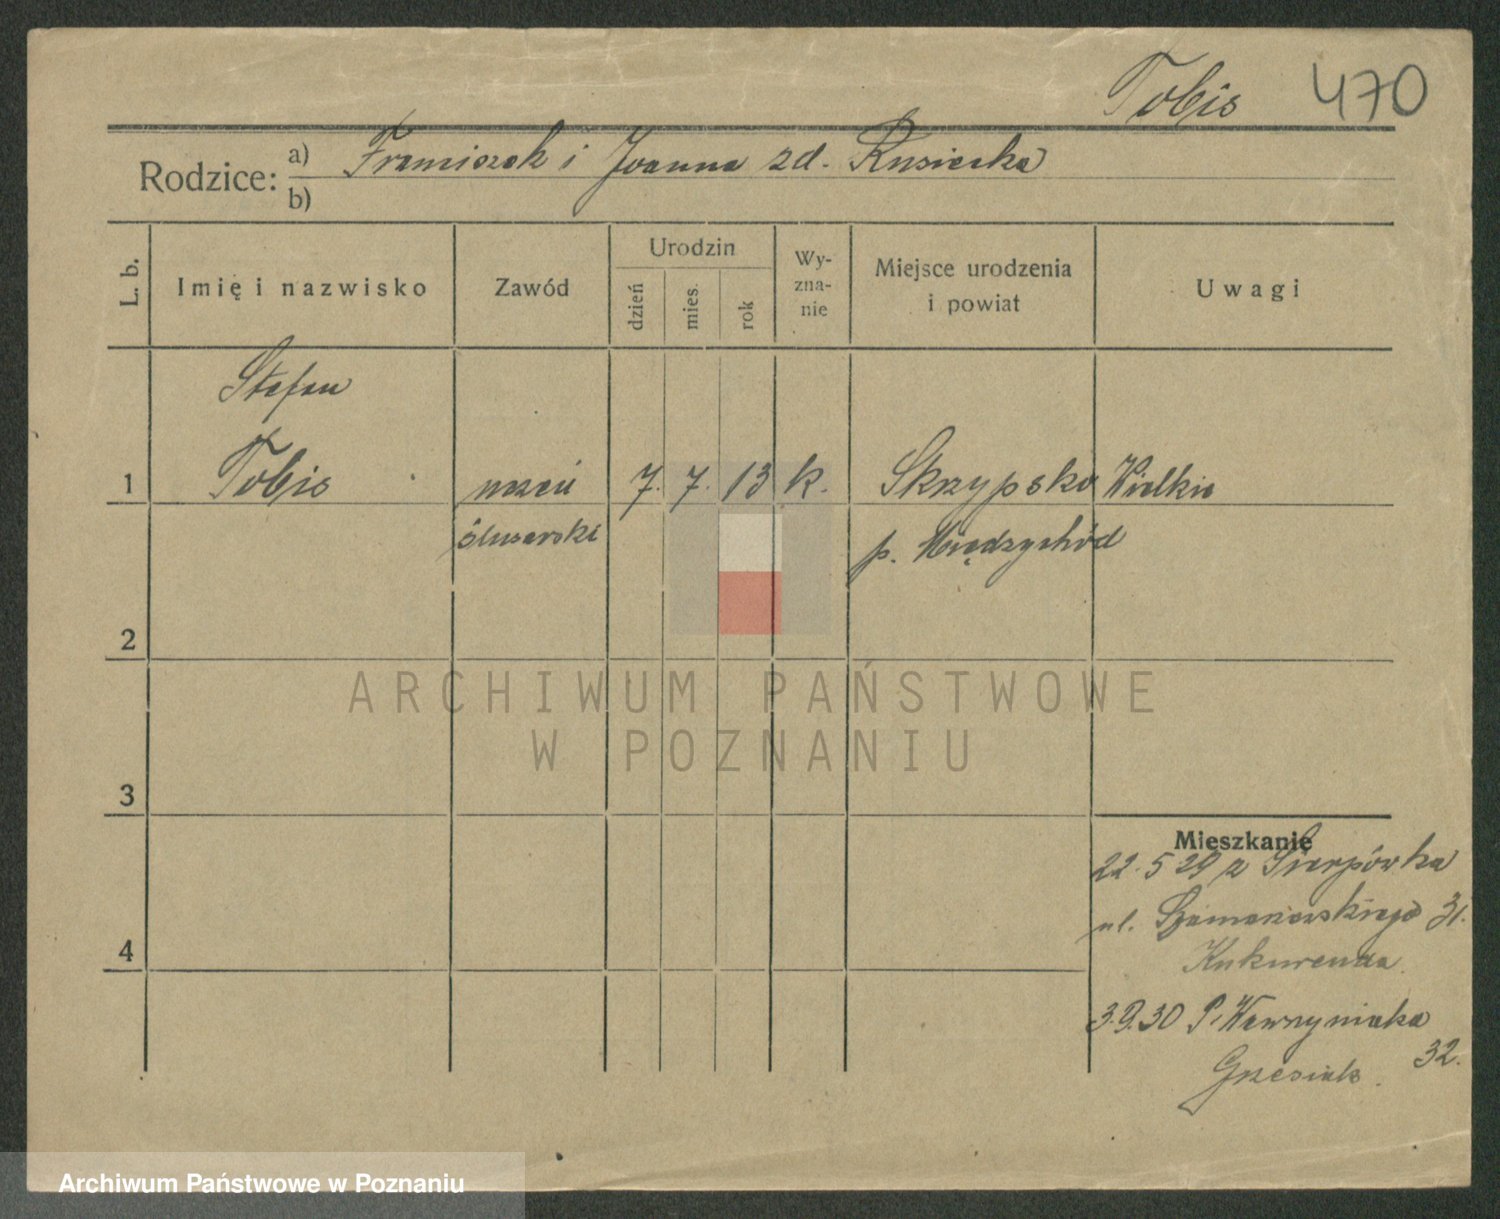 Tobis 470
Rodzice: a) Franciszek i Joanna zd. Rusiecka
b)
L. b. Imię i nazwisko Zawód Urodzin dzień mies. rok Wyznanie Miejsce urodzenia i powiat Uwagi
Stefan
1 Tobis uczeń 7. 7. 13 k. Skrzypsko Wielkie
ślusarski p. Międzychód
2
3
Mieszkanie
22.5 29 z Sierpówka
ul. 31.
4
Kukurenda
3.9.30 P. Wawrzyniaka
32.
Grzesiak.
ARCHIWUM PAŃSTWOWE
W POZNANIU
Archiwum Państwowe w Poznaniu